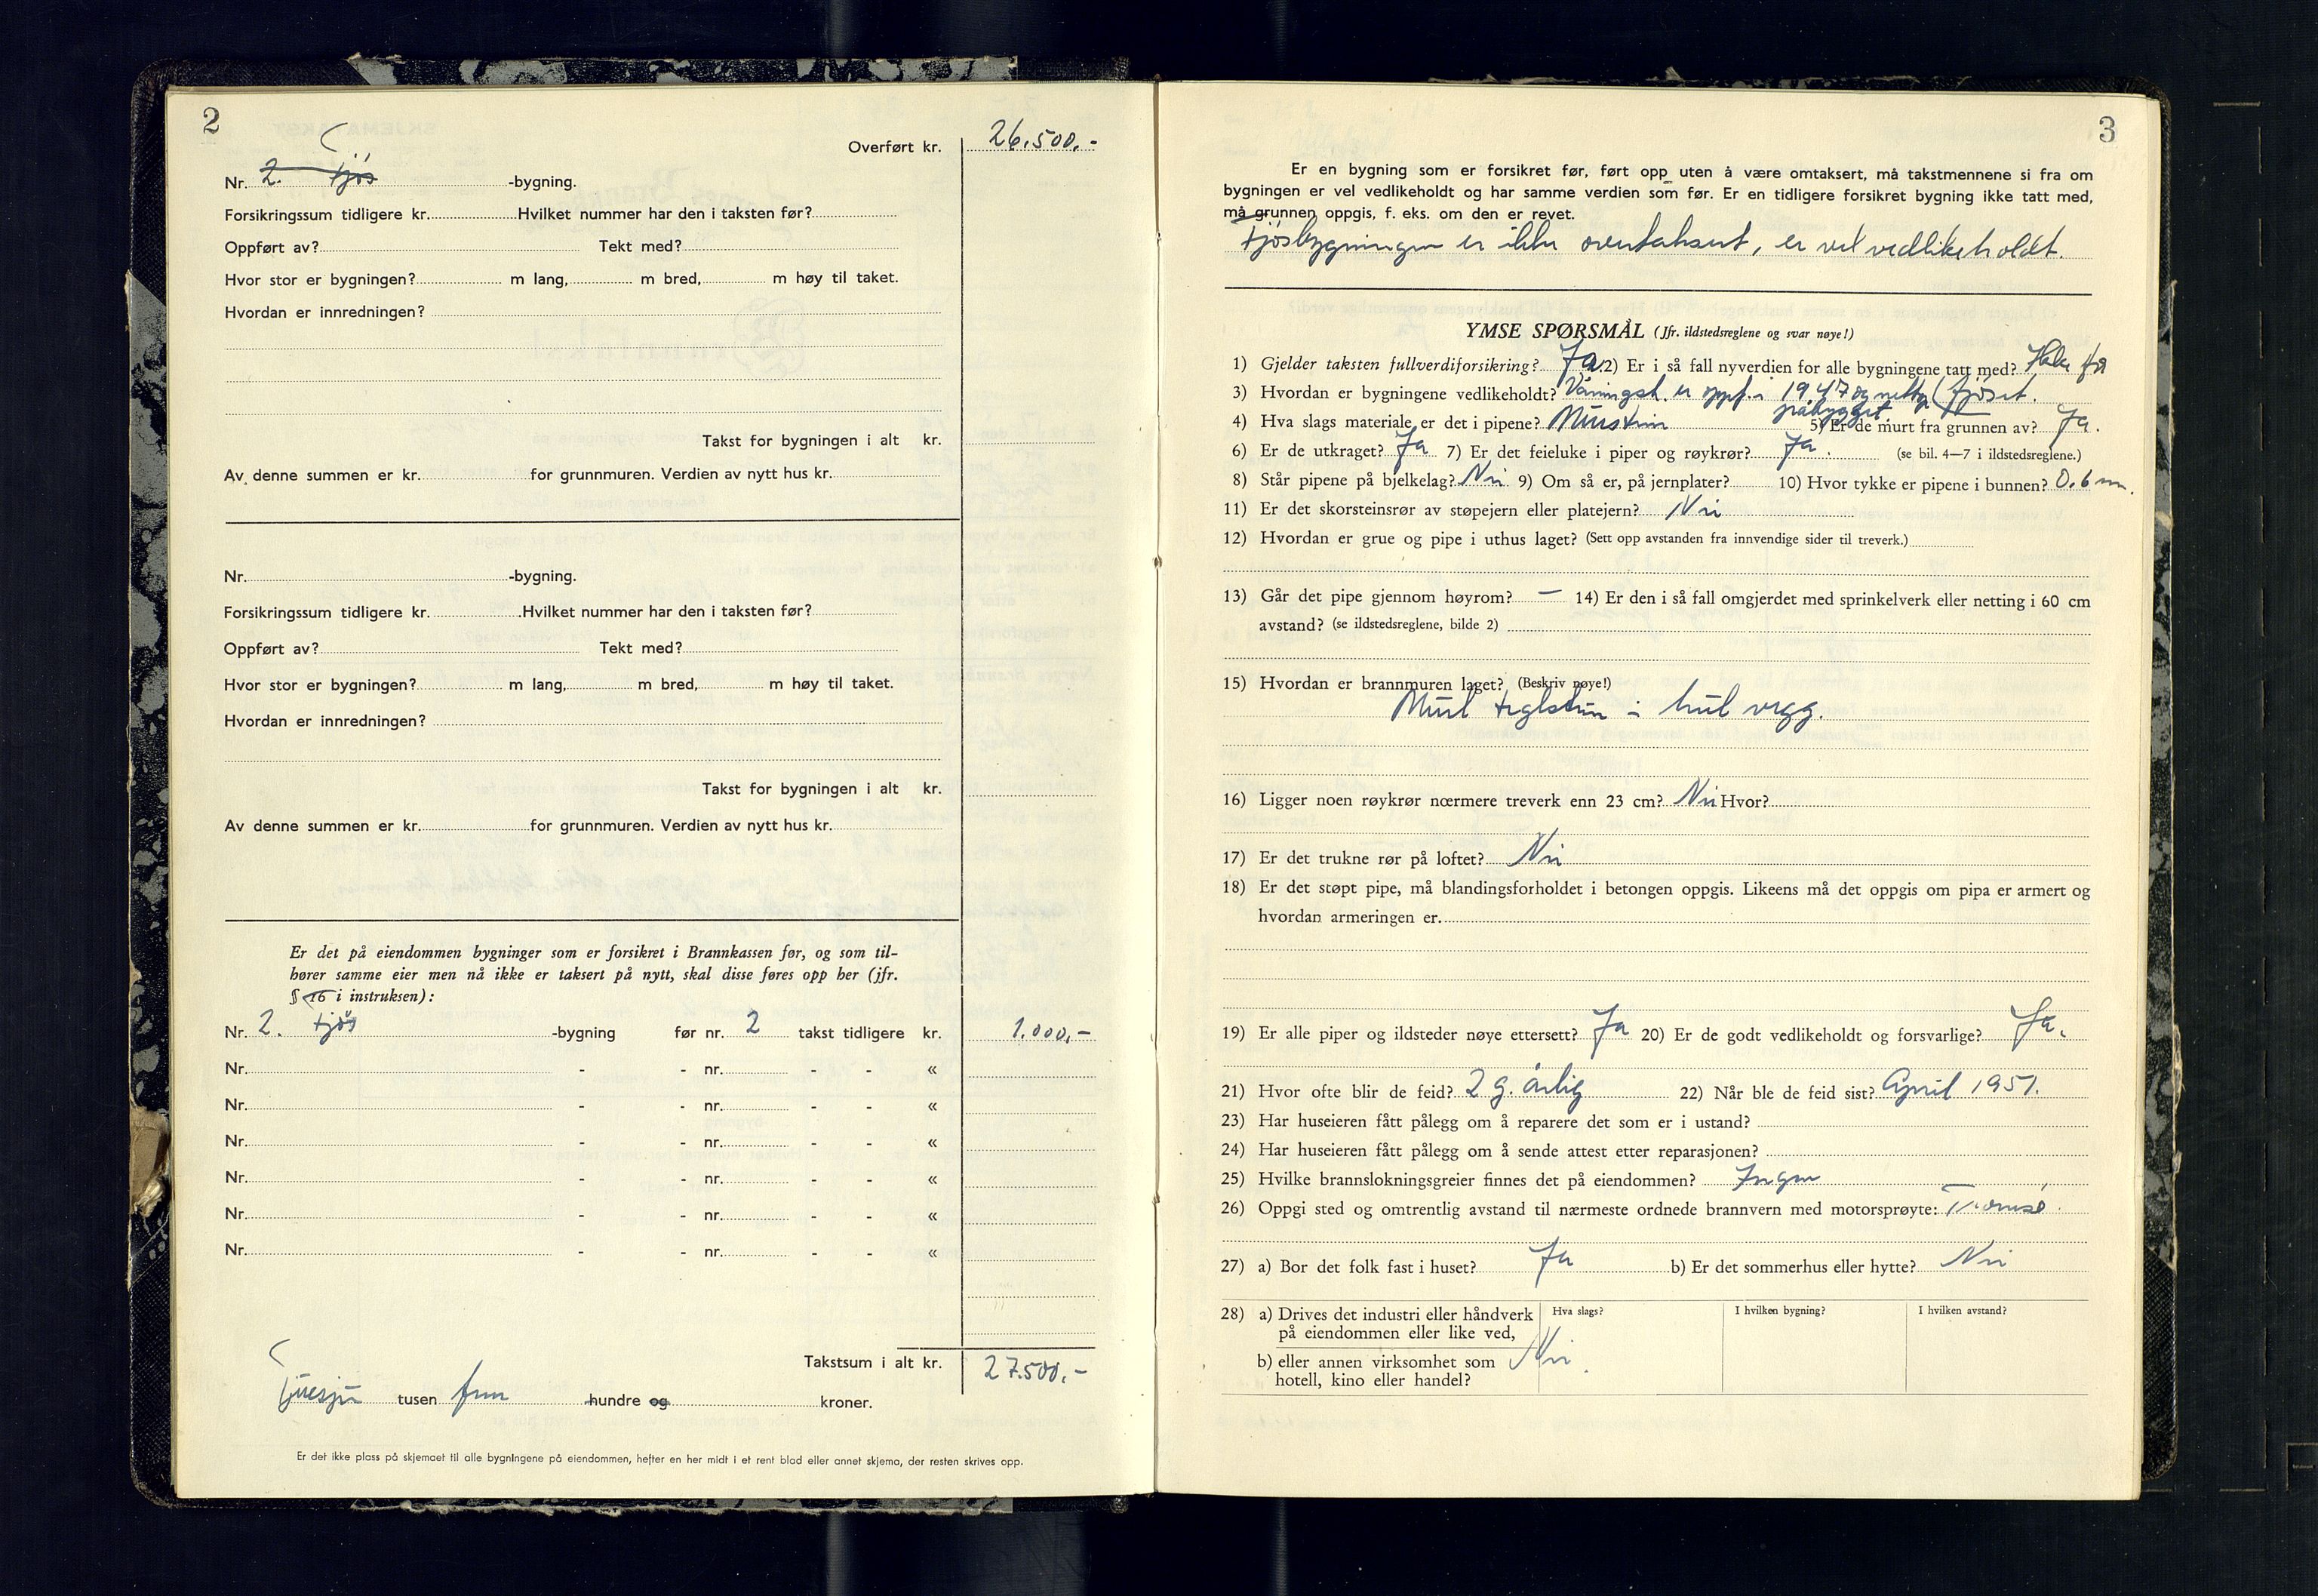 2
Overført kr. 26.500.-
Nr. 2. Fjøs -bygning.
Forsikringssum tidligere kr. Hvilket nummer har den i taksten før?
Oppført av? Tekt med?
Hvor stor er bygningen? m lang, m bred, m høy til taket.
Hvordan er innredningen?
Takst for bygningen i alt kr.
Av denne summen er kr. for grunnmuren. Verdien av nytt hus kr.
Nr. -bygning.
Forsikringssum tidligere kr. Hvilket nummer har den i taksten før?
Oppført av? Tekt med?
Hvor stor er bygningen? m lang, m bred, m høy til taket.
Hvordan er innredningen?
Takst for bygningen i alt kr.
Av denne summen er kr. for grunnmuren. Verdien av nytt hus kr.
Er det på eiendommen bygninger som er forsikret i Brannkassen før, og som til-
hører samme eier men nå ikke er taksert på nytt, skal disse føres opp her (jfr.
§ 16 i instruksen):
Nr. 2. Fjøs -bygning før nr. 2 takst tidligere kr. 1.000,-
Nr. - - nr. - - «
Nr. - - nr. - - «
Nr. - - nr. - - «
Nr. - - nr. - - «
Nr. - - nr. - - «
Nr. - - nr. - - «
Takstsum i alt kr. 27.500,-
Tjuesju tusen fem hundre og kroner.
Er det ikke plass på skjemaet til alle bygningene på eiendommen, hefter en her midt i et rent blad eller annet skjema, der resten skrives opp.
3
Er en bygning som er forsikret før, ført opp uten å være omtaksert, må takstmennene si fra om
bygningen er vel vedlikeholdt og har samme verdien som før. Er en tidligere forsikret bygning ikke tatt med,
må grunnen oppgis, f. eks. om den er revet.
Fjøsbygningen er ikke overtaksert, er vel vedlikeholdt.
YMSE SPØRSMÅL (Jfr. ildstedsreglene og svar nøye!)
1) Gjelder taksten fullverdiforsikring? Ja. 2) Er i så fall nyverdien for alle bygningene tatt med?
3) Hvordan er bygningene vedlikeholdt? Våningsh. er oppf. i 1947 og fjøset.
påbygget.
4) Hva slags materiale er det i pipene? Murstein 5) Er de murt fra grunnen av? Ja.
6) Er de utkraget? Ja 7) Er det feieluke i piper og røykrør? Ja. (se bil. 4—7 i ildstedsreglene.)
8) Står pipene på bjelkelag? Nei 9) Om så er, på jernplater? 10) Hvor tykke er pipene i bunnen? 0.6 m.
11) Er det skorsteinsrør av støpejern eller platejern? Nei
12) Hvordan er grue og pipe i uthus laget? (Sett opp avstanden fra innvendige sider til treverk.)
13) Går det pipe gjennom høyrom? — 14) Er den i så fall omgjerdet med sprinkelverk eller netting i 60 cm
avstand? (se ildstedsreglene, bilde 2)
15) Hvordan er brannmuren laget? (Beskriv nøye!)
Murt teglstein i hul vegg.
16) Ligger noen røykrør nærmere treverk enn 23 cm? Nei Hvor?
17) Er det trukne rør på loftet? Nei
18) Er det støpt pipe, må blandingsforholdet i betongen oppgis. Likeens må det oppgis om pipa er armert og
hvordan armeringen er.
19) Er alle piper og ildsteder nøye ettersett? Ja 20) Er de godt vedlikeholdt og forsvarlige? Ja.
21) Hvor ofte blir de feid? 2 g. årlig 22) Når ble de feid sist? April 1951.
23) Har huseieren fått pålegg om å reparere det som er i ustand?
24) Har huseieren fått pålegg om å sende attest etter reparasjonen?
25) Hvilke brannslokningsgreier finnes det på eiendommen? Ingen
26) Oppgi sted og omtrentlig avstand til nærmeste ordnede brannvern med motorsprøyte: Tromsø.
27) a) Bor det folk fast i huset? Ja b) Er det sommerhus eller hytte? Nei
28) a) Drives det industri eller håndverk Hva slags? I hvilken bygning? I hvilken avstand?
på eiendommen eller like ved,
b) eller annen virksomhet som Nei.
hotell, kino eller handel?